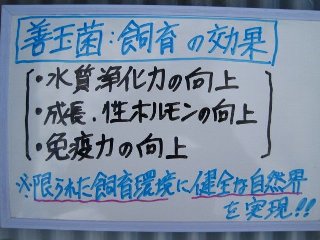 善玉菌:飼育の効果
・水質浄化力の向上
・成長、性ホルモンの向上
・免疫力の向上
※限られた飼育環境に健全な自然界
を実現!!